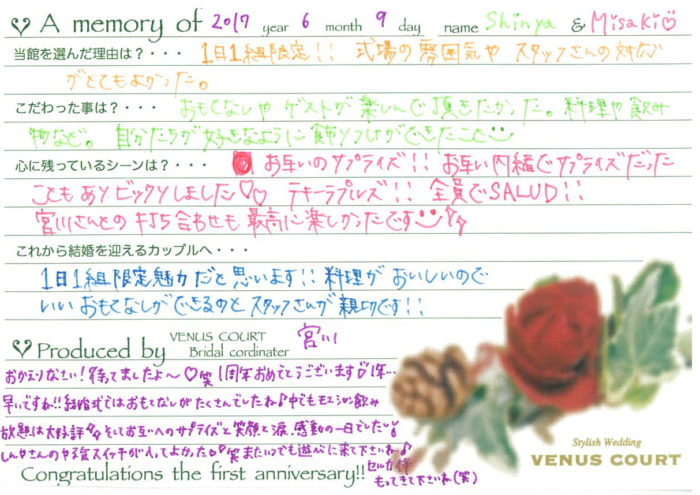 A memory of 2017 year 6 month 9 day name Shinya & Misaki♡
当館を選んだ理由は？・・・ 1日1組限定!! 式場の雰囲気や スタッフさんの対応
がとてもよかった。
こだわった事は？・・・ おもてなしや ゲストが楽しんで頂きたかった。料理や飲み
物など。 自分たちが好きなように飾りつけができたこと
心に残っているシーンは？・・・ お互いのサプライズ!! お互い内緒でサプライズだった
こともありビックリしました♡♡ テキーラプルズ!! 全員でSALUD!!
宮川さんとの打ち合わせも最高に楽しかったです
これから結婚を迎えるカップルへ・・・
1日1組限定魅力だと思います!! 料理がおいしいので
いいおもてなしができるのとスタッフさんが親切です!!
Produced by VENUS COURT
Bridal cordinater 宮川
おかえりなさい!待ってましたよ〜♡笑 1周年おめでとうございます♡1年…
早いですね!!結婚式ではおもてなしがたくさんでしたね♪中でもモエシャン飲み
放題は大好評 そしてお互いへのサプライズと笑顔と涙、感動の一日でした
しんやさんのやる気スイッチが入ってよかった 笑 またいつでも遊びに来て下さいね♪
Congratulations the first anniversary!!
もってきて下さいね(笑)
Stylish Wedding
VENUS COURT